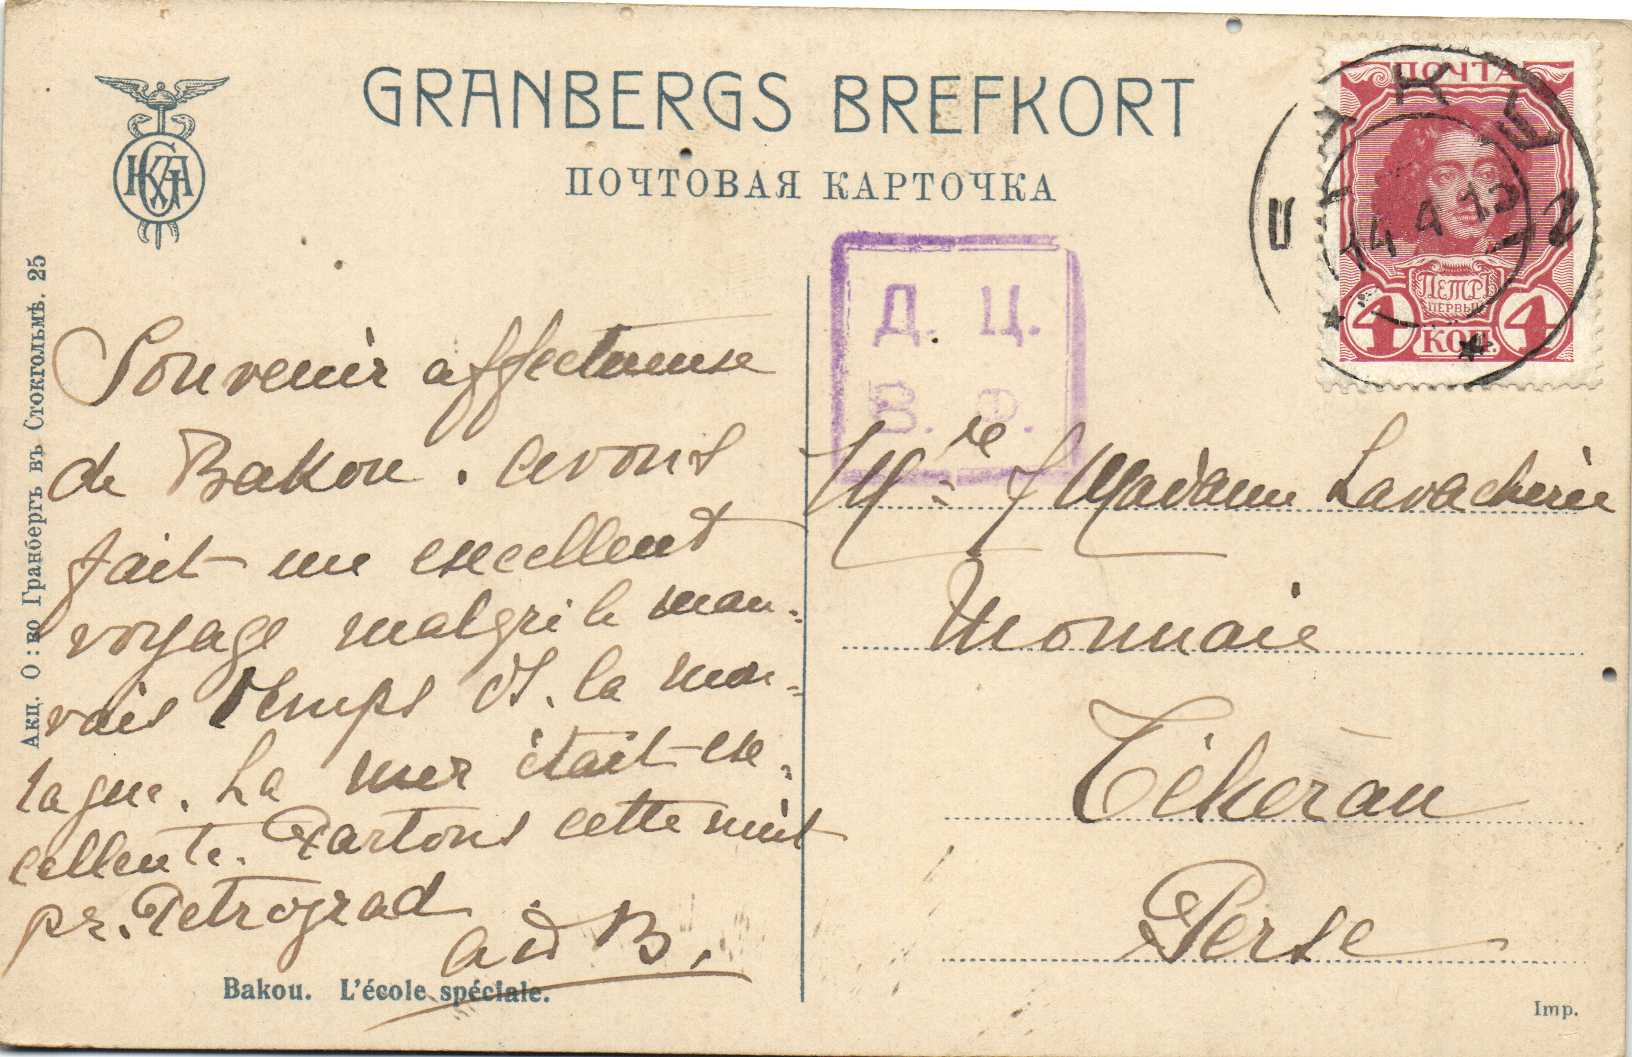 GRANBERGS BREFKORT
ПОЧТОВАЯ КАРТОЧКА
Акц. О:во Гранбергъ въ Стокгольмѣ. 25
ПОЧТА
ПЕТРЪ
ПЕРВЫЙ
4 КОП. 4
14 4 15
2
Д. Ц.
В. Ф.
Souvenir affectueuse
de Bakou. avons
fait un excellent
voyage malgré le mau-
vais temps et la
La mer était ex-
cellente. Partons cette nuit
pr. Petrograd
Madame Lavachérie
Monnaie
Téhéran
Perse
Bakou. L'école spéciale.
Imp.